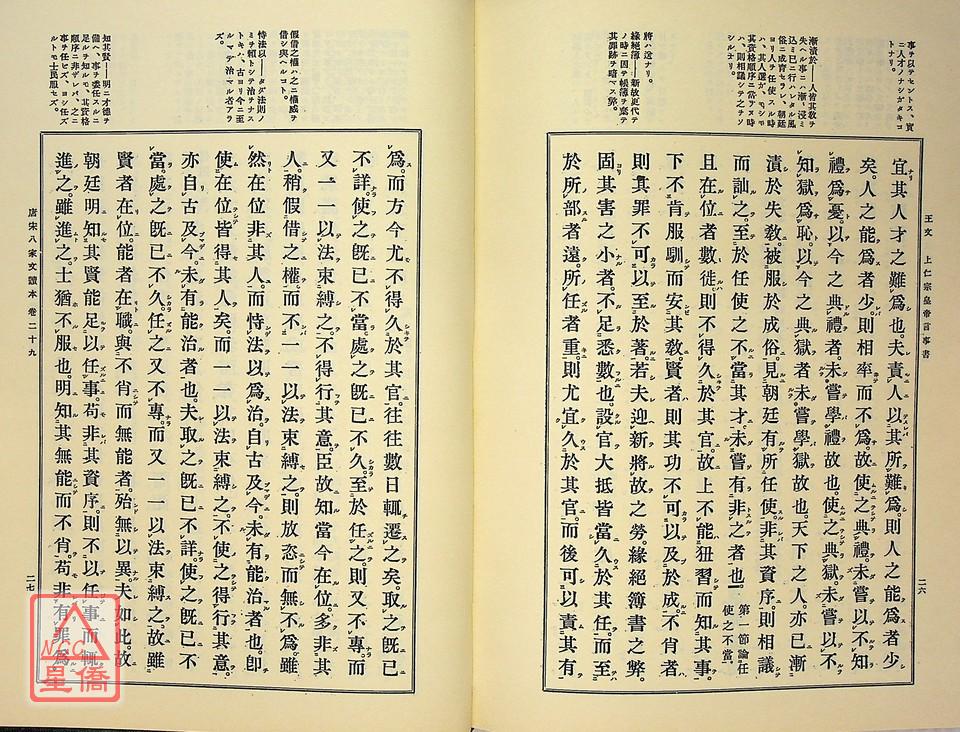 王文 上仁宗皇帝言事書
二六
事ヲ以テセントス、實ニ人才ノナシガタキコトナリ。
漸漬於――人皆其教ヲ失ヘル事ニ漸々浸ミ込ミ已ニ行ハレタル風俗ニ成育セラレ、朝廷ヨリ人ヲ任使スル時ハ、其人選ガ、モシモ其資格順序ニ當ラヌ時ハ、則相議シテ之ヲソシルナリ。
將ハ送ナリ。
緣絕簿――新故更代ヲノ時ニ因テ帳簿ヲ棄テ其罪跡ヲ暗マス弊。
宜其人才之難爲也。夫責人以其所難爲、則人之能爲者少
矣。人之能爲者少、則相率而不爲。故使之典禮、未嘗以不知
禮爲憂。以今之典禮者、未嘗學禮故也。使之典獄、未嘗以不
知獄爲恥。以今之典獄者、未嘗學獄故也。天下之人、亦已漸
漬於失教、被服於成俗。見朝廷有所任使、非其資序、則相議
而訕之。至於任使之不當其才、未嘗有非之者也。第一節論任使之不當。
且在位者數徙、則不得久於其官。故上不能狃習而知其事。
下不肯服馴而安其教。賢者則其功不可以及於成。不肖者
則其罪不可以至於著。若夫迎新將故之勞、緣絕簿書之弊、
固其害之小者、不足悉數也。設官大抵皆當久於其任。而至
於所部者遠、所任者重、則尤宜久於其官。而後可以責其有
假借之權ハ之ニ權威ヲ借シ與ヘルコト。
恃法以――タヾ法則ノミヲ賴トシテ治ヲナストキハ、古ヨリ今ニ至ルマデ治マル者アラズ。
知其賢――明ニ才德ヲ備ヘ、事ヲ委任スルニ足ルヲ知ルモ、其資格順序ニ非ザレバ、之ニ事ヲ任ヒズ、ヨシ任ズルトモ士民服セズ。
爲。而方今尤不得久於其官。往往數日輒遷之矣。取之既已
不詳、使之既已不當、處之既已不久。至於任之、則又不專、而
又一一以法束縛之、不得行其意。臣故知當今在位、多非其
人。稍假借之權、而不一一以法束縛之、則放恣而無不爲。雖
然在位非其人、而恃法以爲治、自古及今、未有能治者也。卽
使在位皆得其人矣、而一一以法束縛之、不使之得行其意、
亦自古及今、未有能治者也。夫取之既已不詳、使之既已不
當、處之既已不久、任之又不專、而又一一以法束縛之。故雖
賢者在位、能者在職、與不肖而無能者、殆無以異。夫如此、故
朝廷明知其賢能足以任事、苟非其資序、則不以任事而輒
進之。雖進之、士猶不服也。明知其無能而不肖、苟非有罪爲
唐宋八家文讀本 卷二十九
二七
NCC
星僑